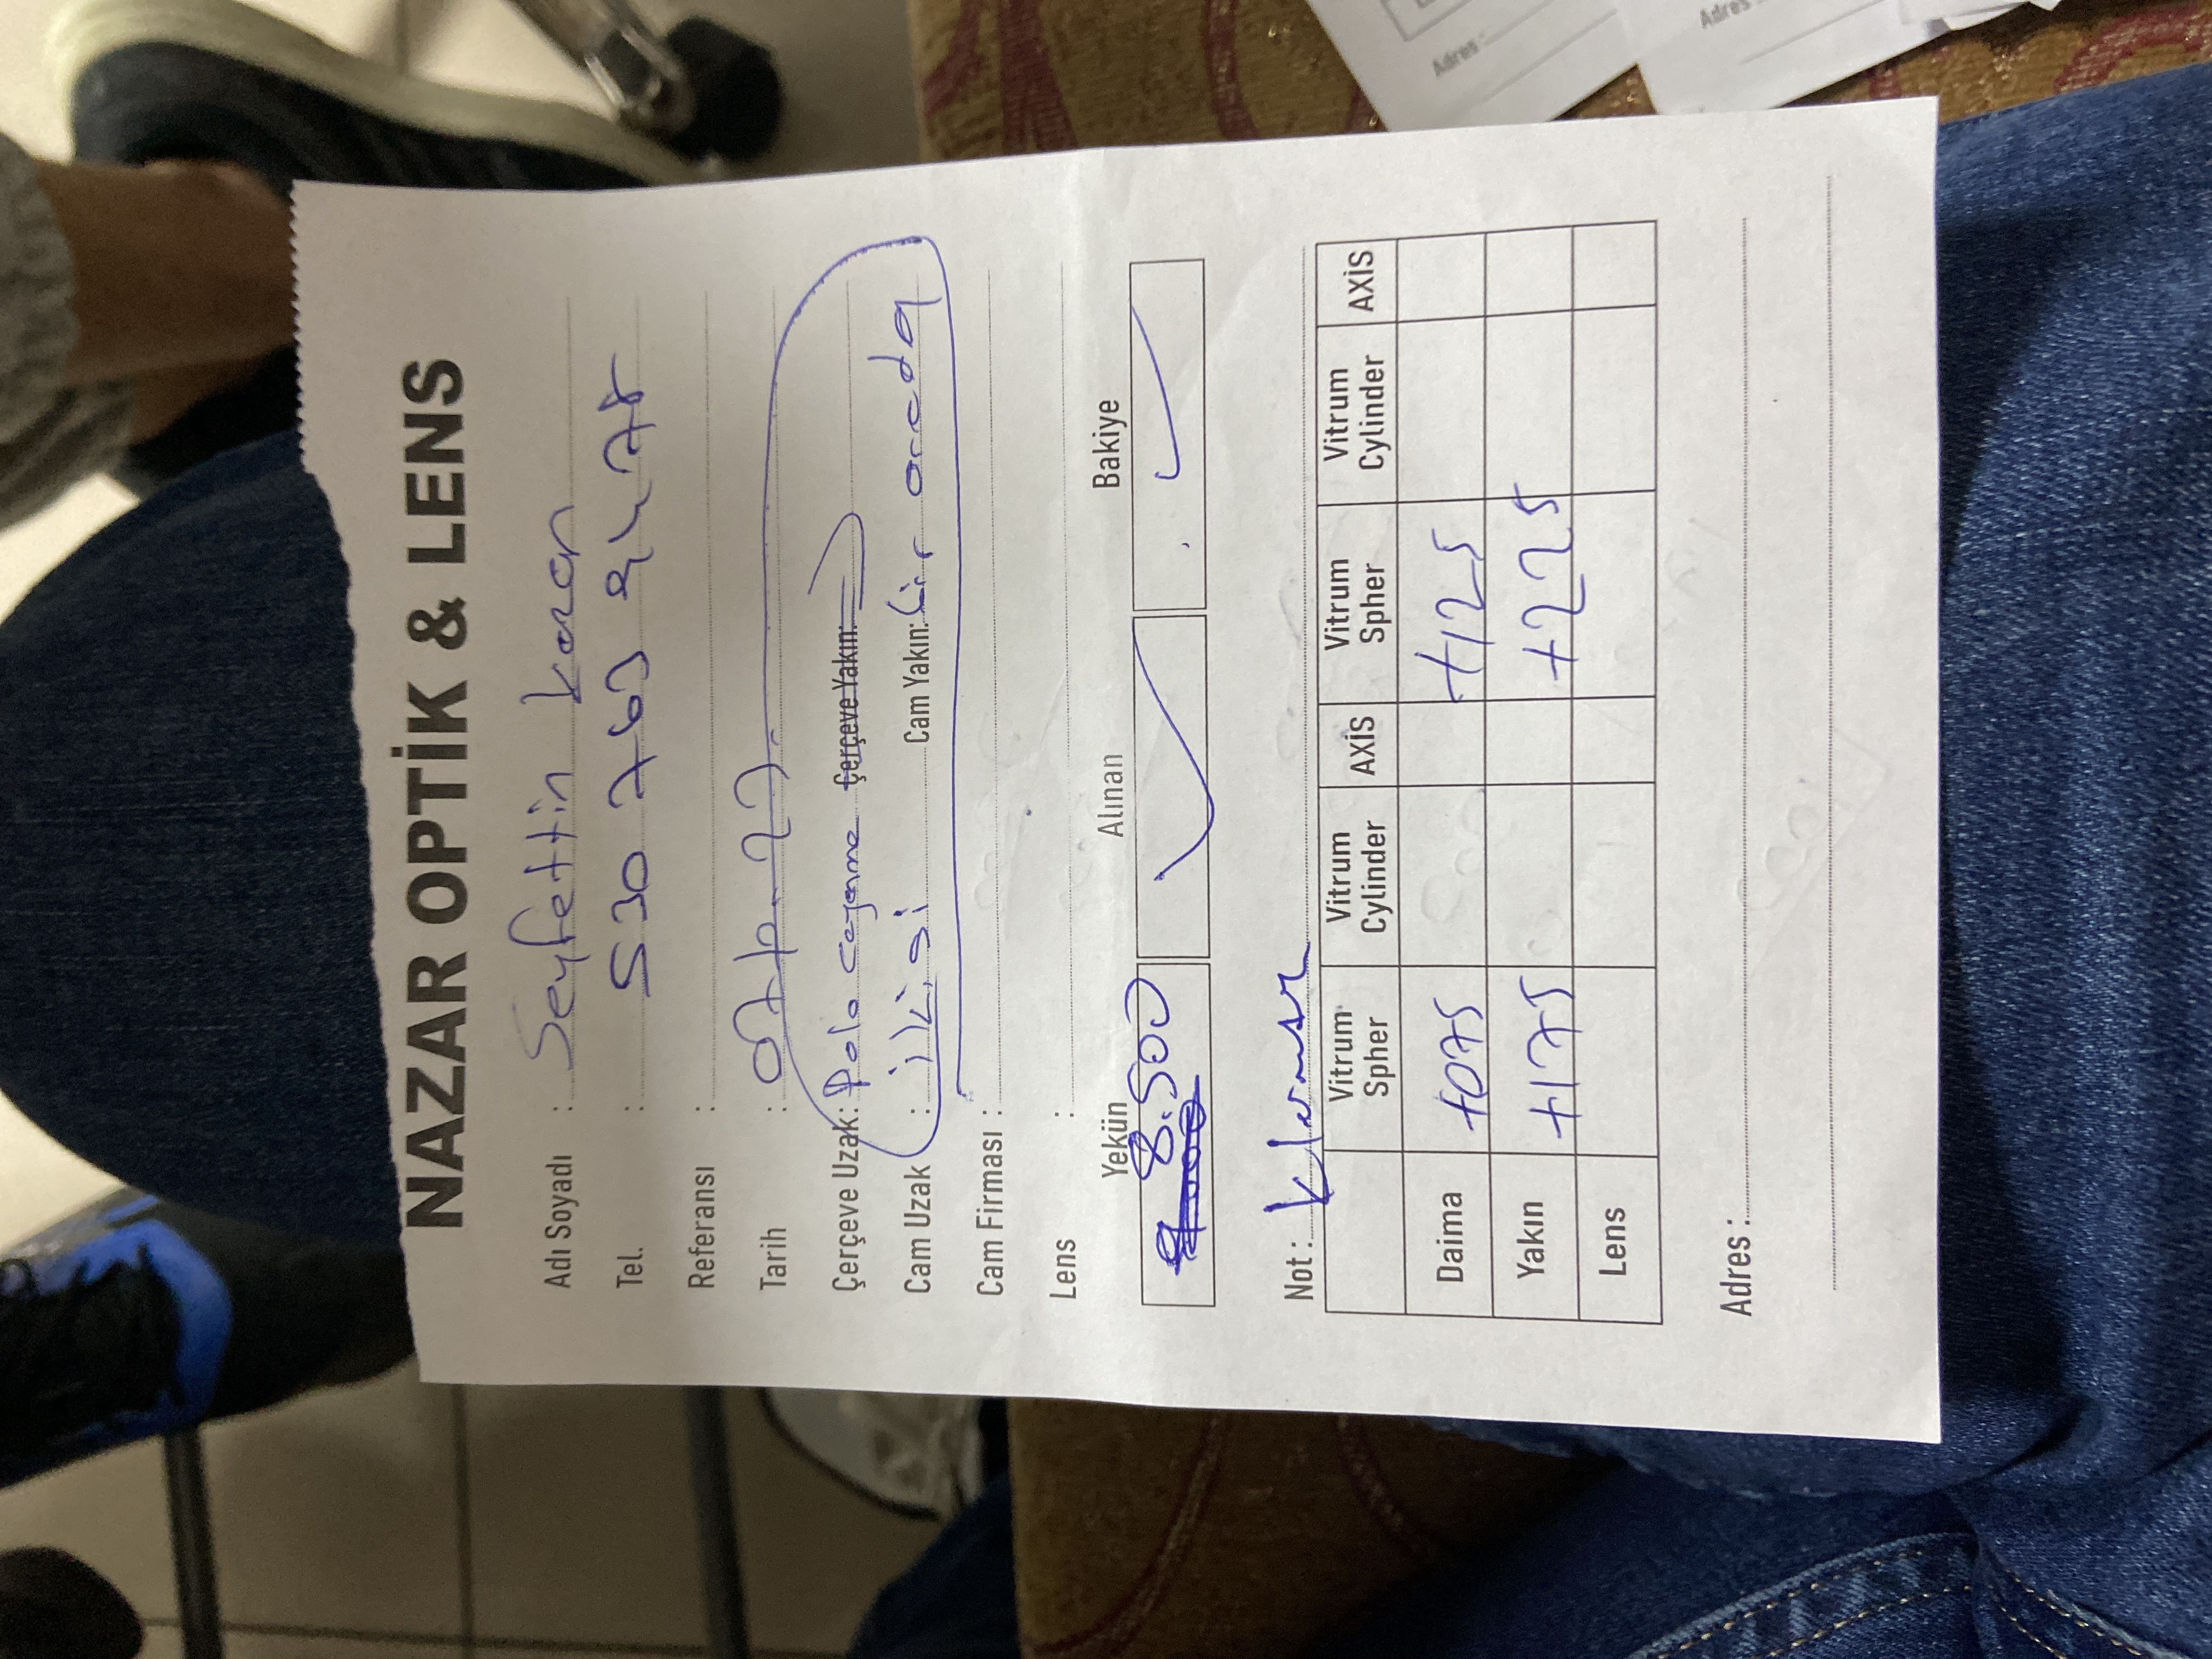 NAZAR OPTİK & LENS
Adı Soyadı : Seyfettin kazan
Tel. : 530 763 94 78
Referansı :
Tarih :
Çerçeve Uzak: Polo cayenne Çerçeve Yakın:
Cam Uzak : ikisi Cam Yakın: bir arada
Cam Firması :
Lens :
Yekün Alınan Bakiye
8.500
9.000
Not :
Vitrum Spher Vitrum Cylinder AXİS Vitrum Spher Vitrum Cylinder AXİS
Daima +075 +125
Yakın +175 +225
Lens
Adres :
Adres :
Adres